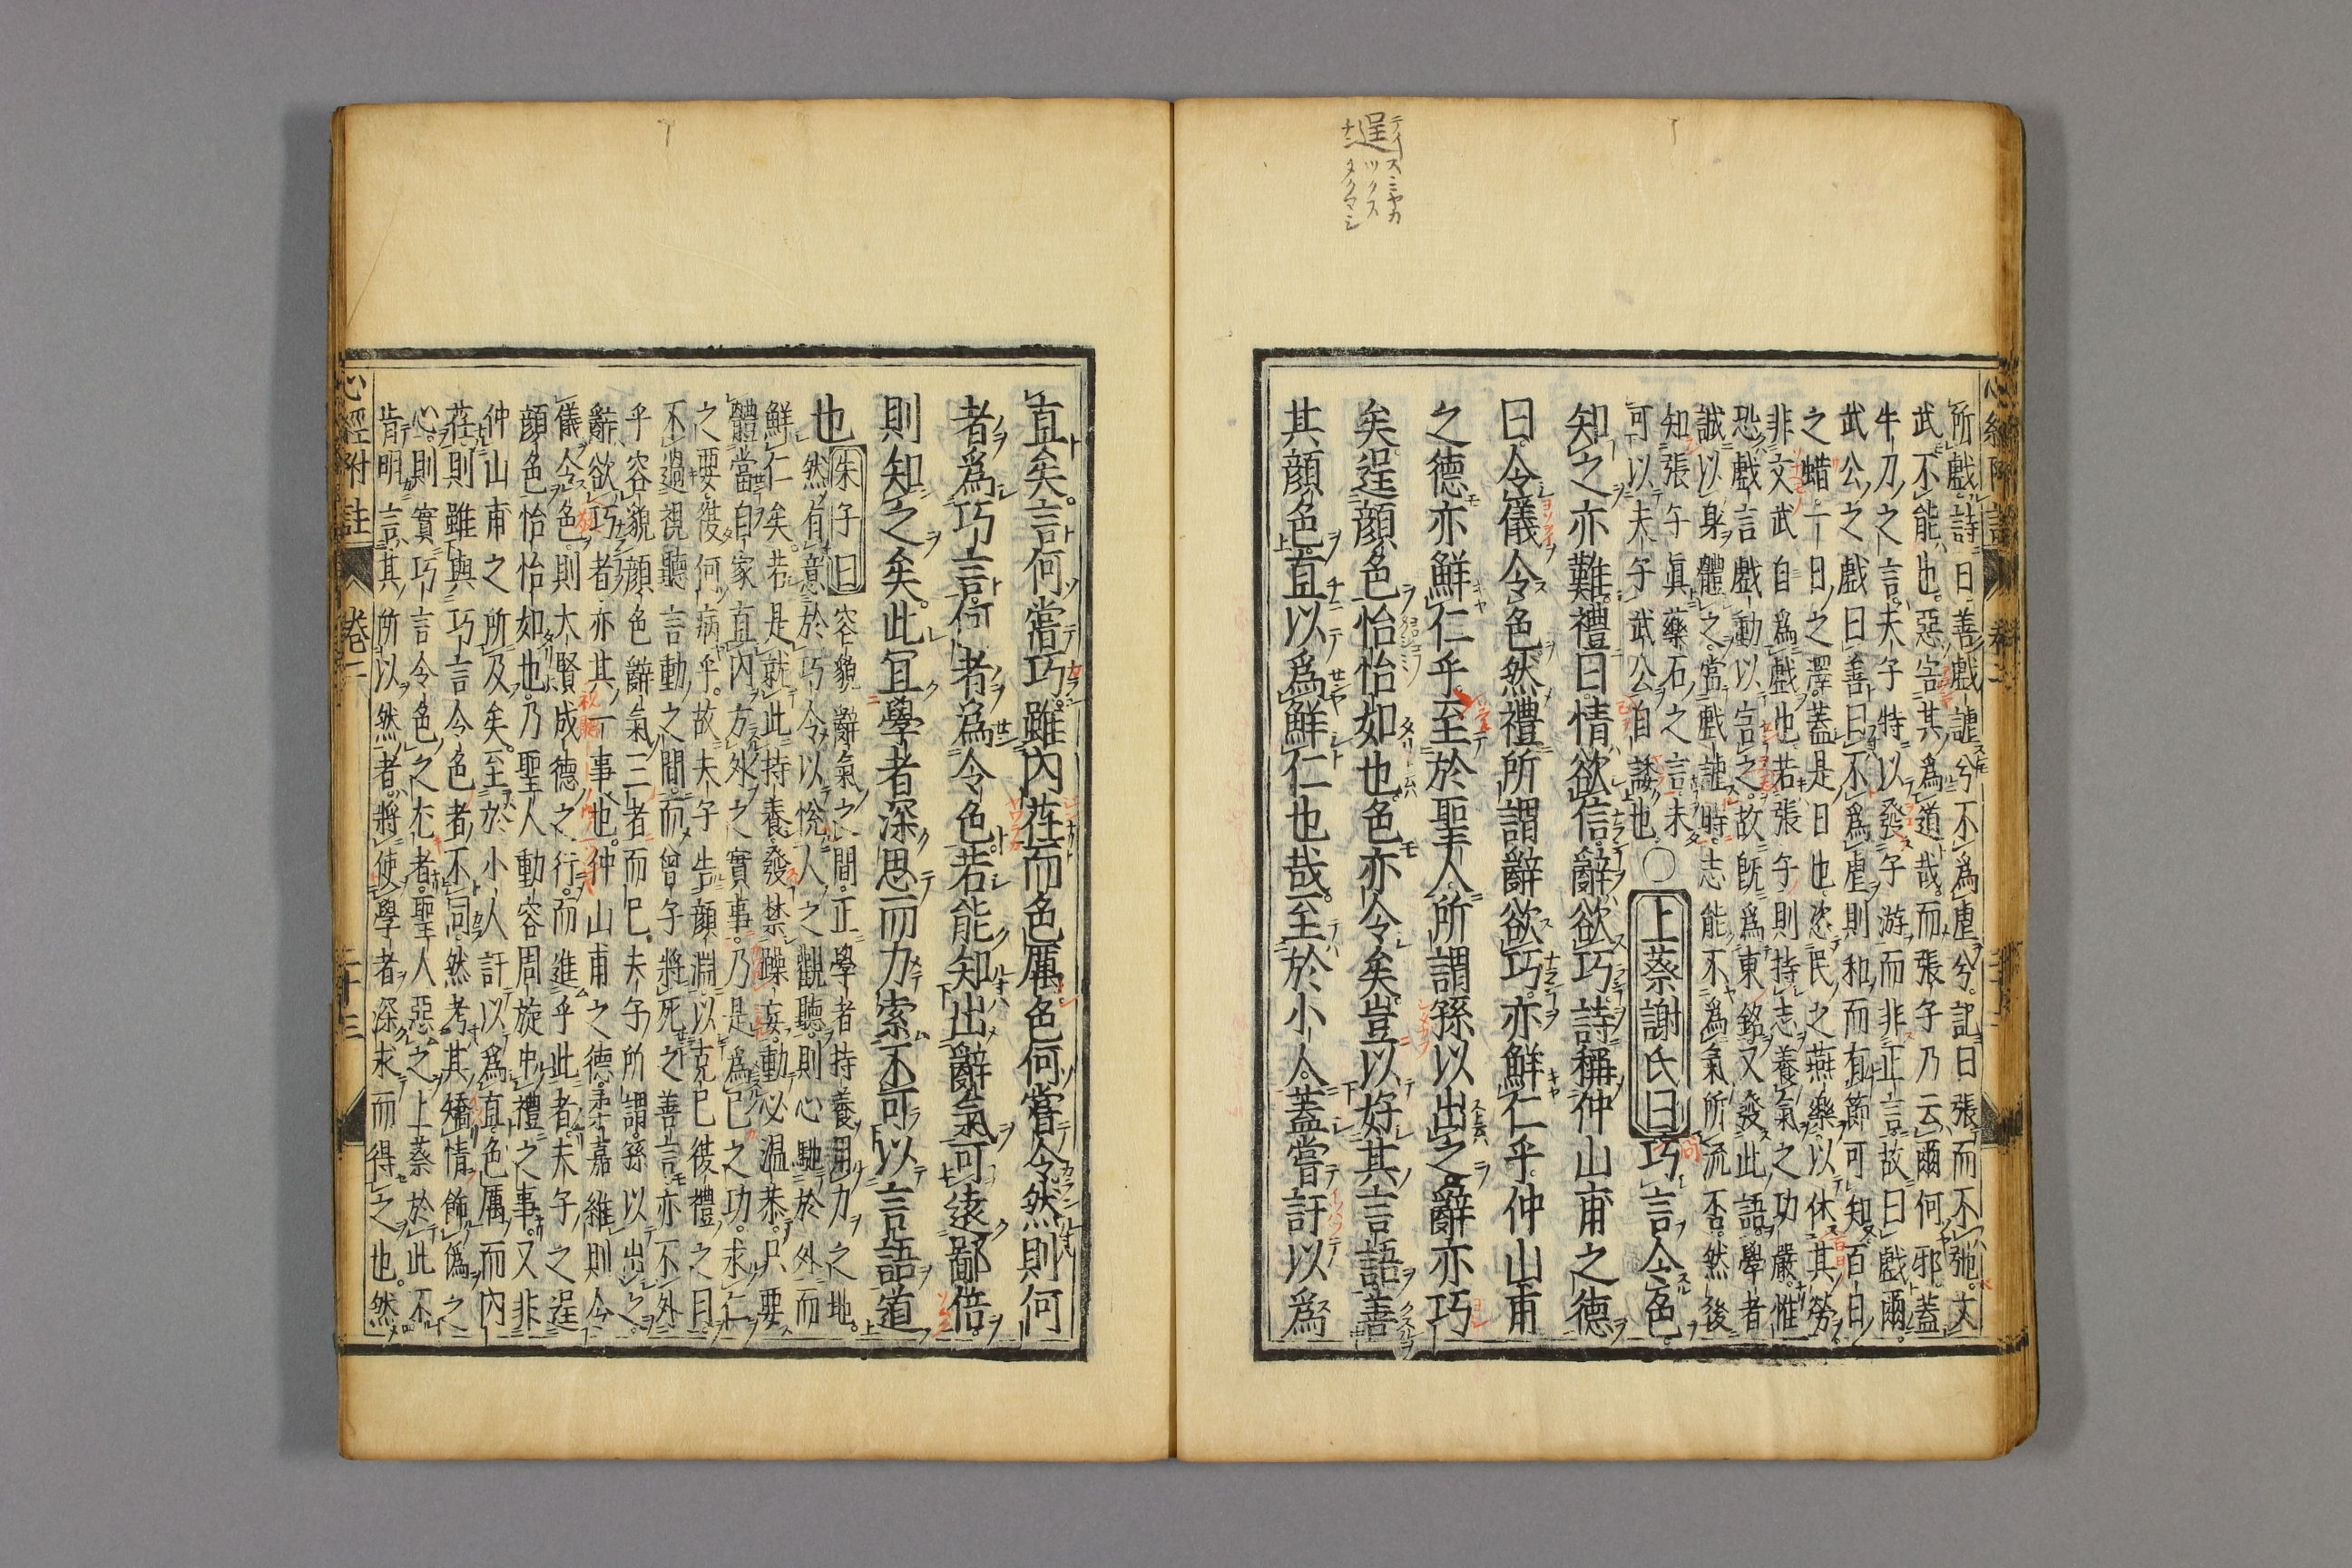 逞
テイ スミヤカ
ツクス
チン タクマシ
所戲詩曰善戲謔兮不爲虐兮記曰張而不弛文
武不能也惡害其爲道哉而張子乃云爾何邪蓋
牛刀之言夫子特以發子游而非正言故曰戲爾
武公之戲曰善曰不爲虐則和而有節可知百日
之蜡一日之澤蓋是日也恣民之燕樂以休其勞
非文武自爲戲也若張子則持志養氣之功嚴惟
恐戲言戲動以害之故旣爲東銘又發此語學者
誠以身體之當戲謔時志能不爲氣所流否然後
知張子眞藥石之言未
可以夫子武公自諉也○上蔡謝氏曰巧言令色
知之亦難禮曰情欲信辭欲巧詩稱仲山甫之德
曰令儀令色然禮所謂辭欲巧亦鮮仁乎仲山甫
之德亦鮮仁乎至於聖人所謂孫以出之辭亦巧
矣逞顏色怡怡如也色亦令矣豈以好其言語善
其顏色直以爲鮮仁也哉至於小人蓋嘗訐以爲
直矣言何嘗巧雖內荏而色厲色何嘗令然則何
者爲巧言何者爲令色若能知出辭氣可遠鄙倍
則知之矣此宜學者深思而力索不可以言語道
也朱子曰容貌辭氣之間正學者持養用力之地
然有意於巧令以悅人之觀聽則心馳於外而
鮮仁矣若是就此持養發禁躁妄動必溫恭只要
體當自家直內方外之實事乃是爲己之功求仁
之要復何病乎故夫子告顏淵以克己復禮之目
不過視聽言動之間而曾子將死之善言亦不外
乎容貌顏色辭氣三者而已夫子所謂孫以出之
辭欲巧者亦其一事也仲山甫之德柔嘉維則令
儀令色則大賢成德之行而進乎此者夫子之逞
顏色怡怡如也乃聖人動容周旋中禮之事又非
仲山甫之所及矣至於小人訐以爲直色厲而內
荏則雖與巧言令色者不同然考其矯情飾僞之
心則實巧言令色之尤者聖人惡之上蔡於此不
肯明言其所以然者將使學者深求而得之也然
心經附註 卷二 二十三